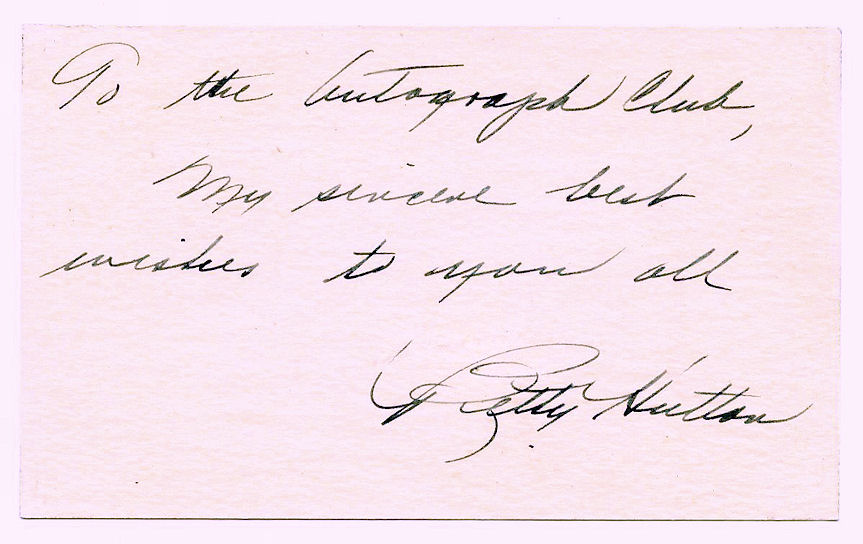 To the Autograph Club,
My sincere best
wishes to you all
Betty Hutton